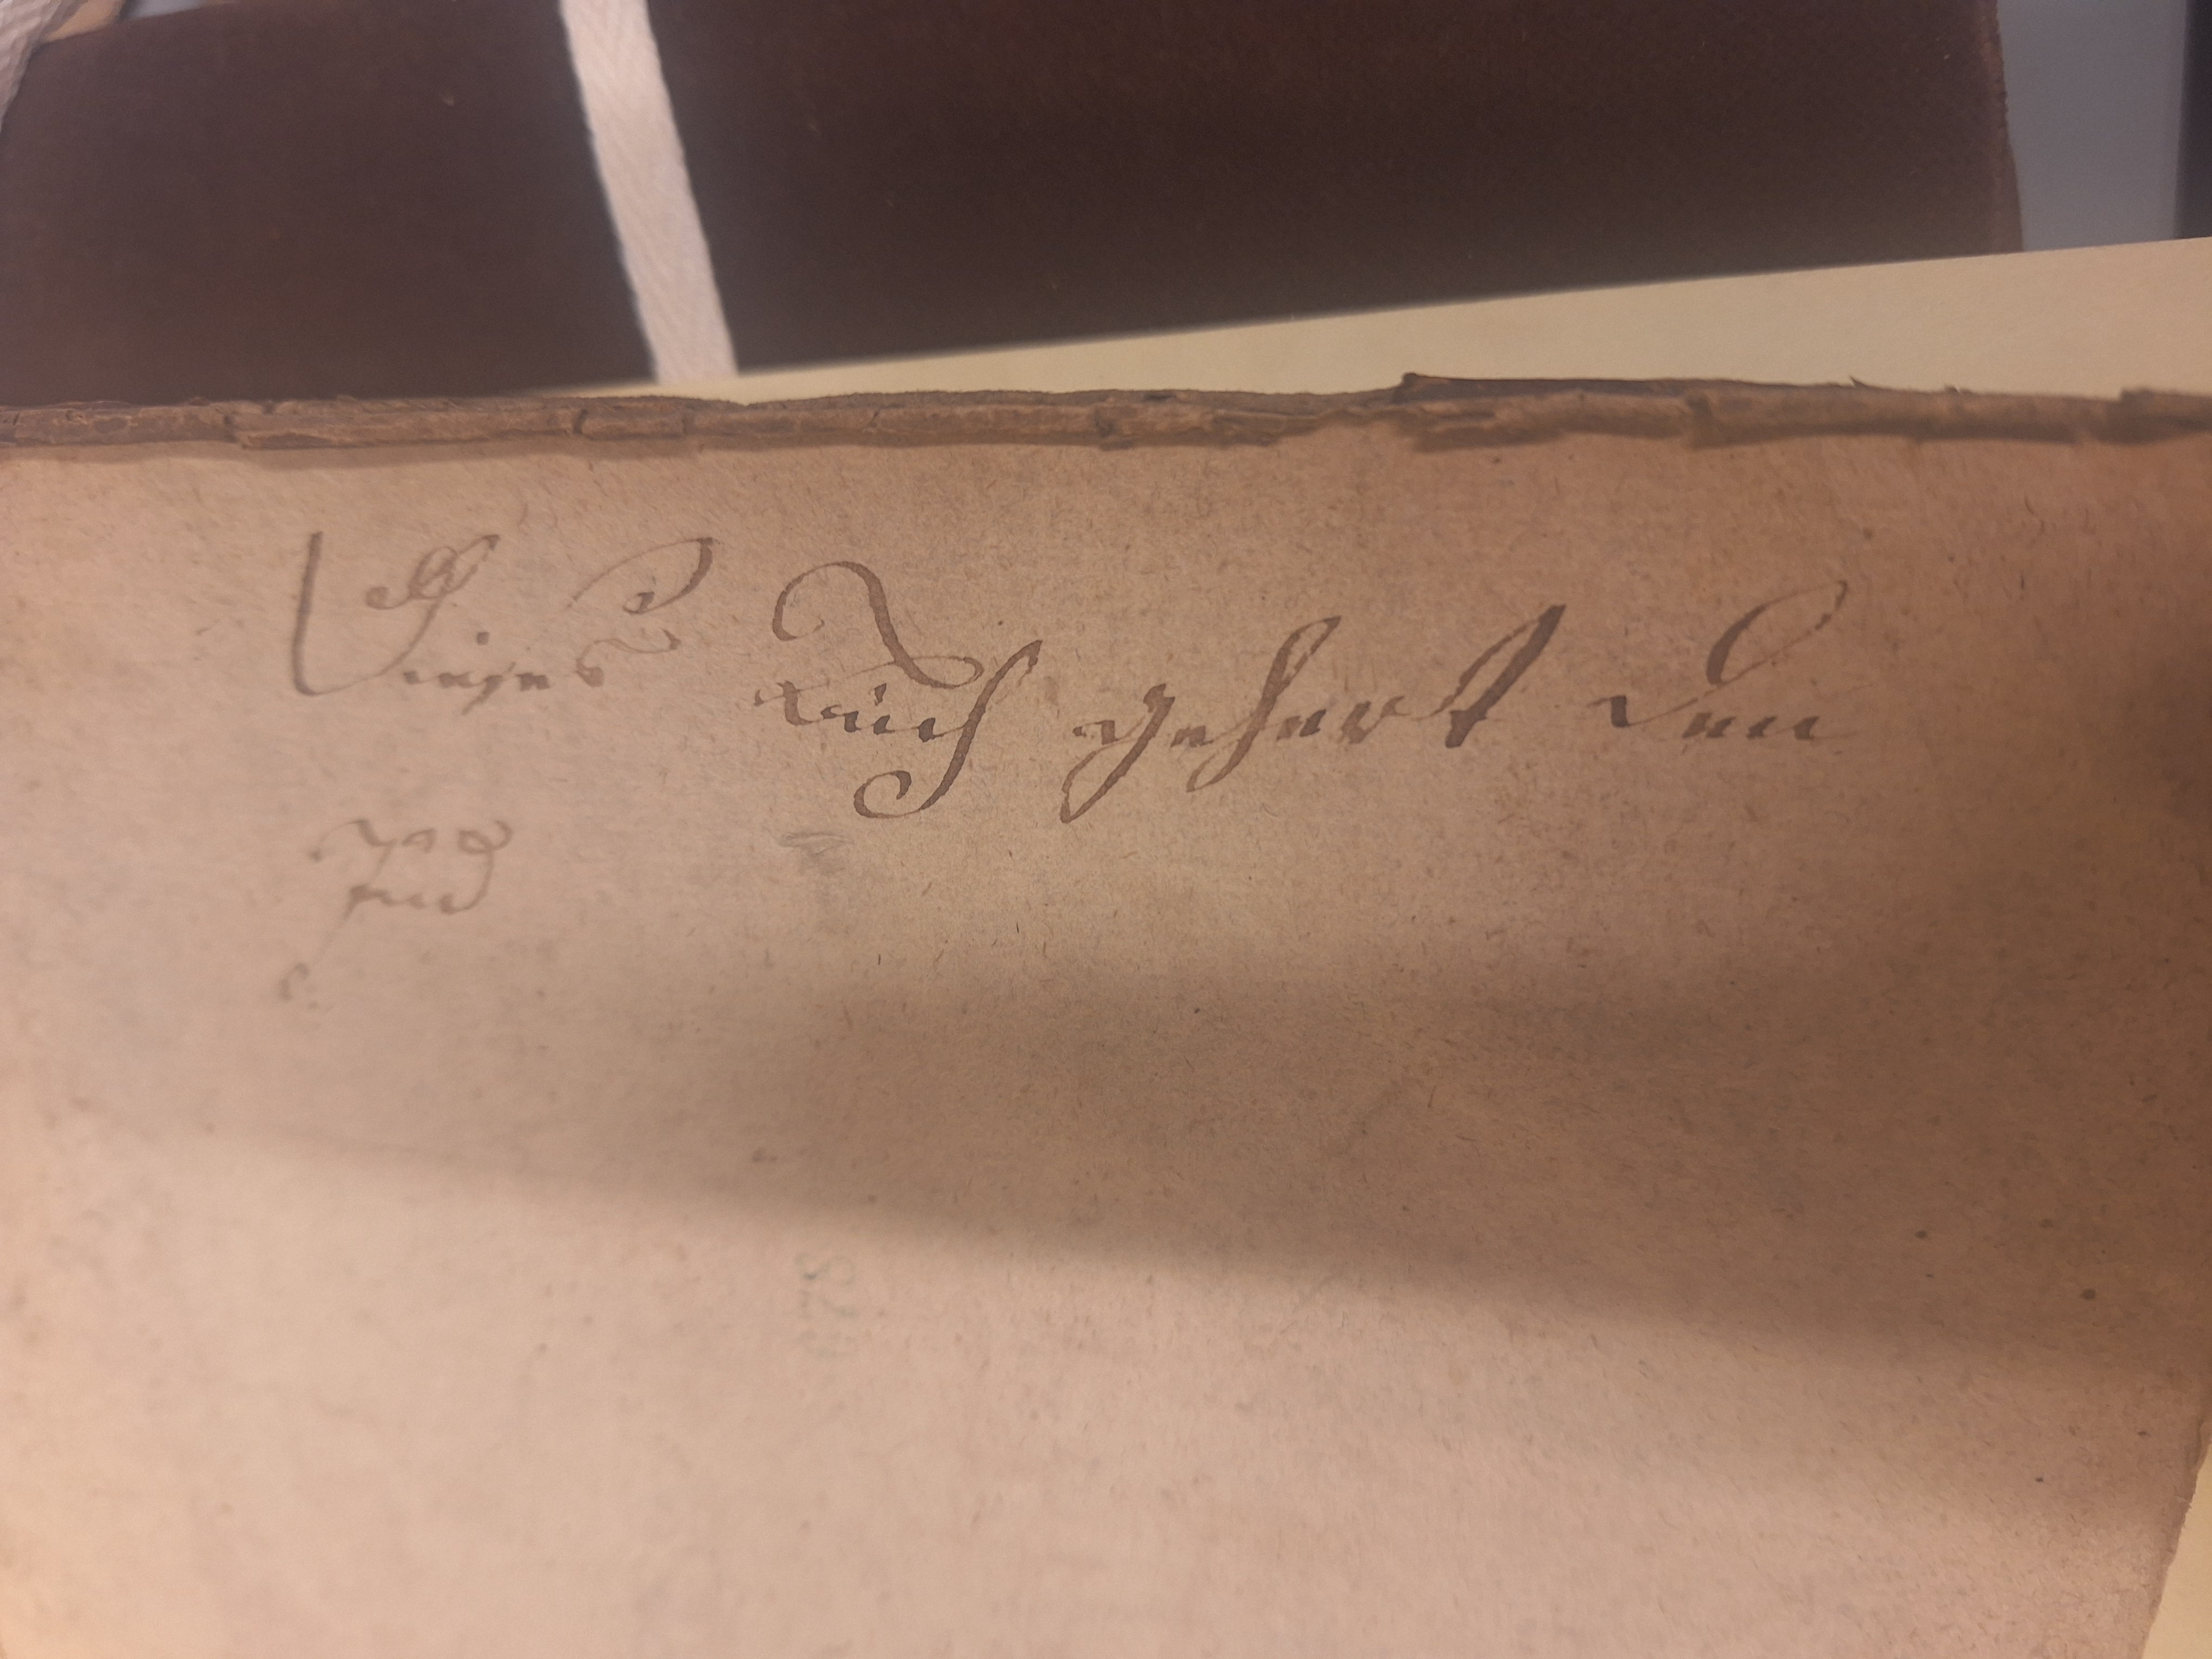 Dieses Buch gehert den